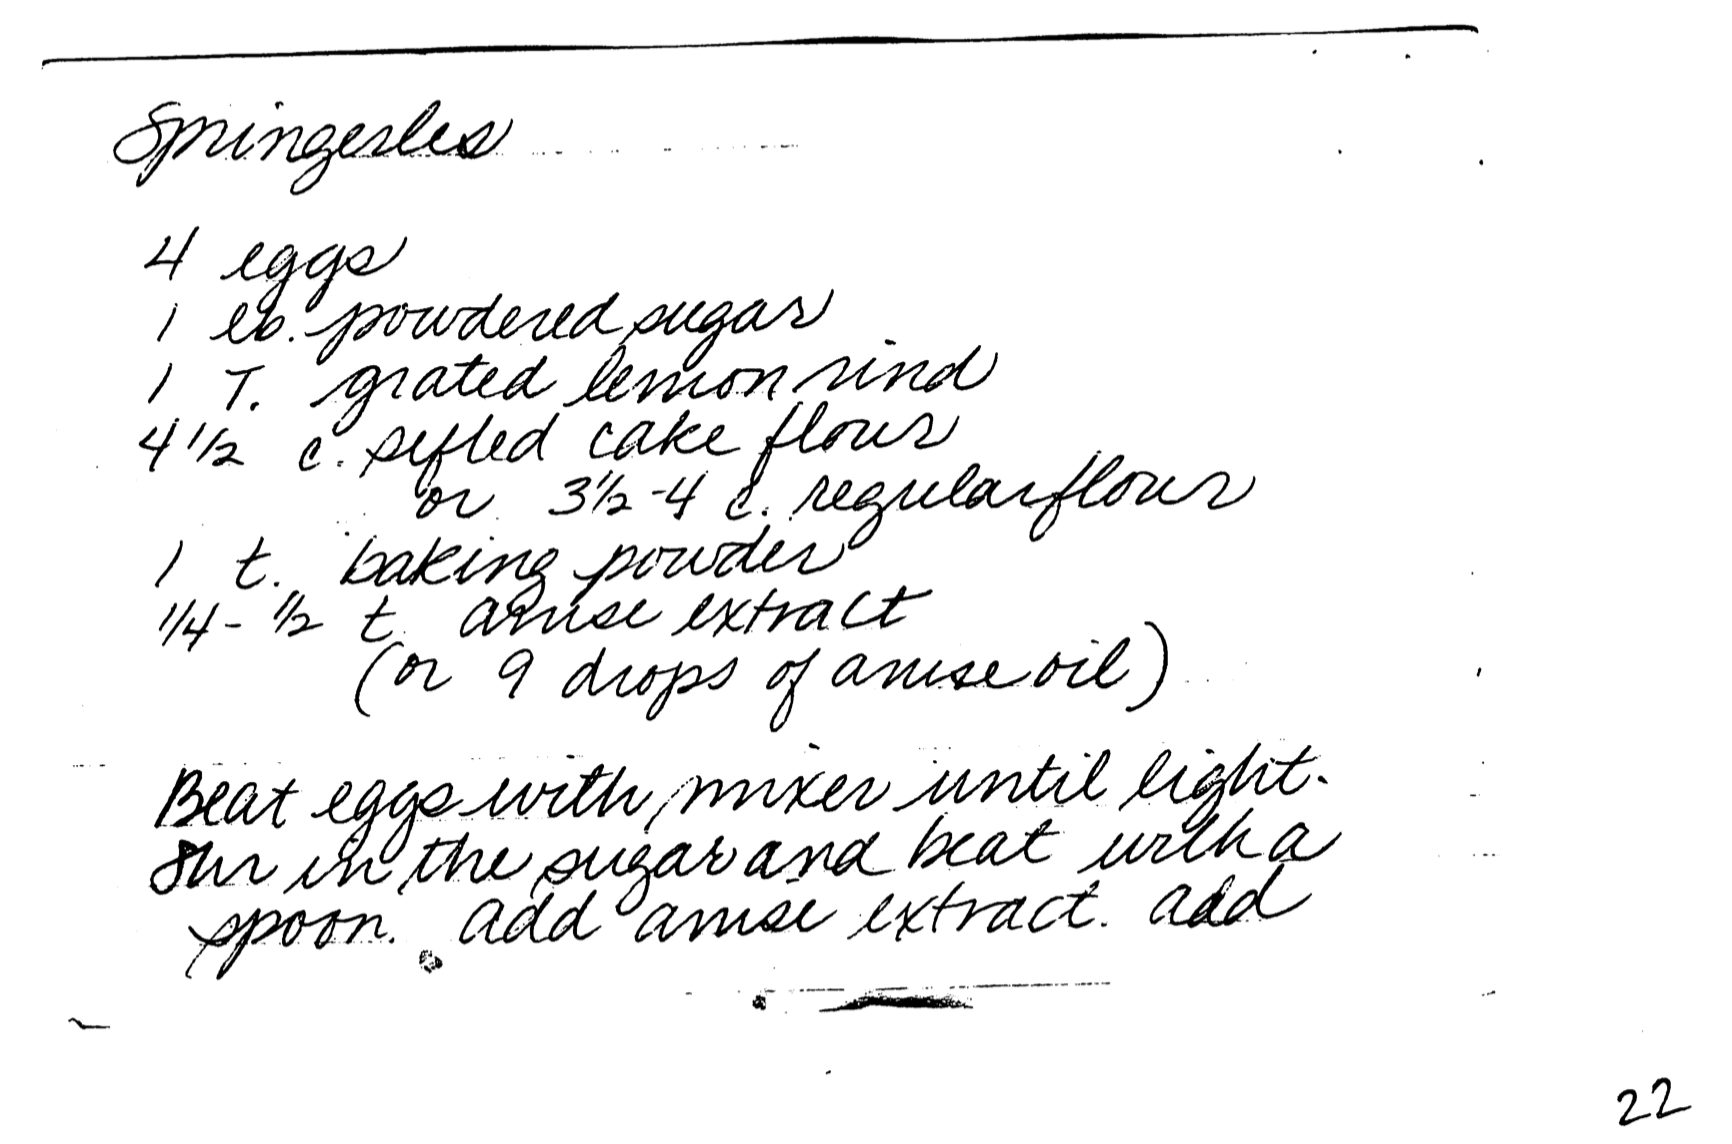 Springerles
4 eggs
1 lb. powdered sugar
1 T. grated lemon rind
4 1/2 c. sifted cake flour
or 3 1/2 - 4 c. regular flour
1 t. baking powder
1/4 - 1/2 t. anise extract
(or 9 drops of anise oil)
Beat eggs with mixer until light.
Stir in the sugar and beat with a
spoon. add anise extract. add
22